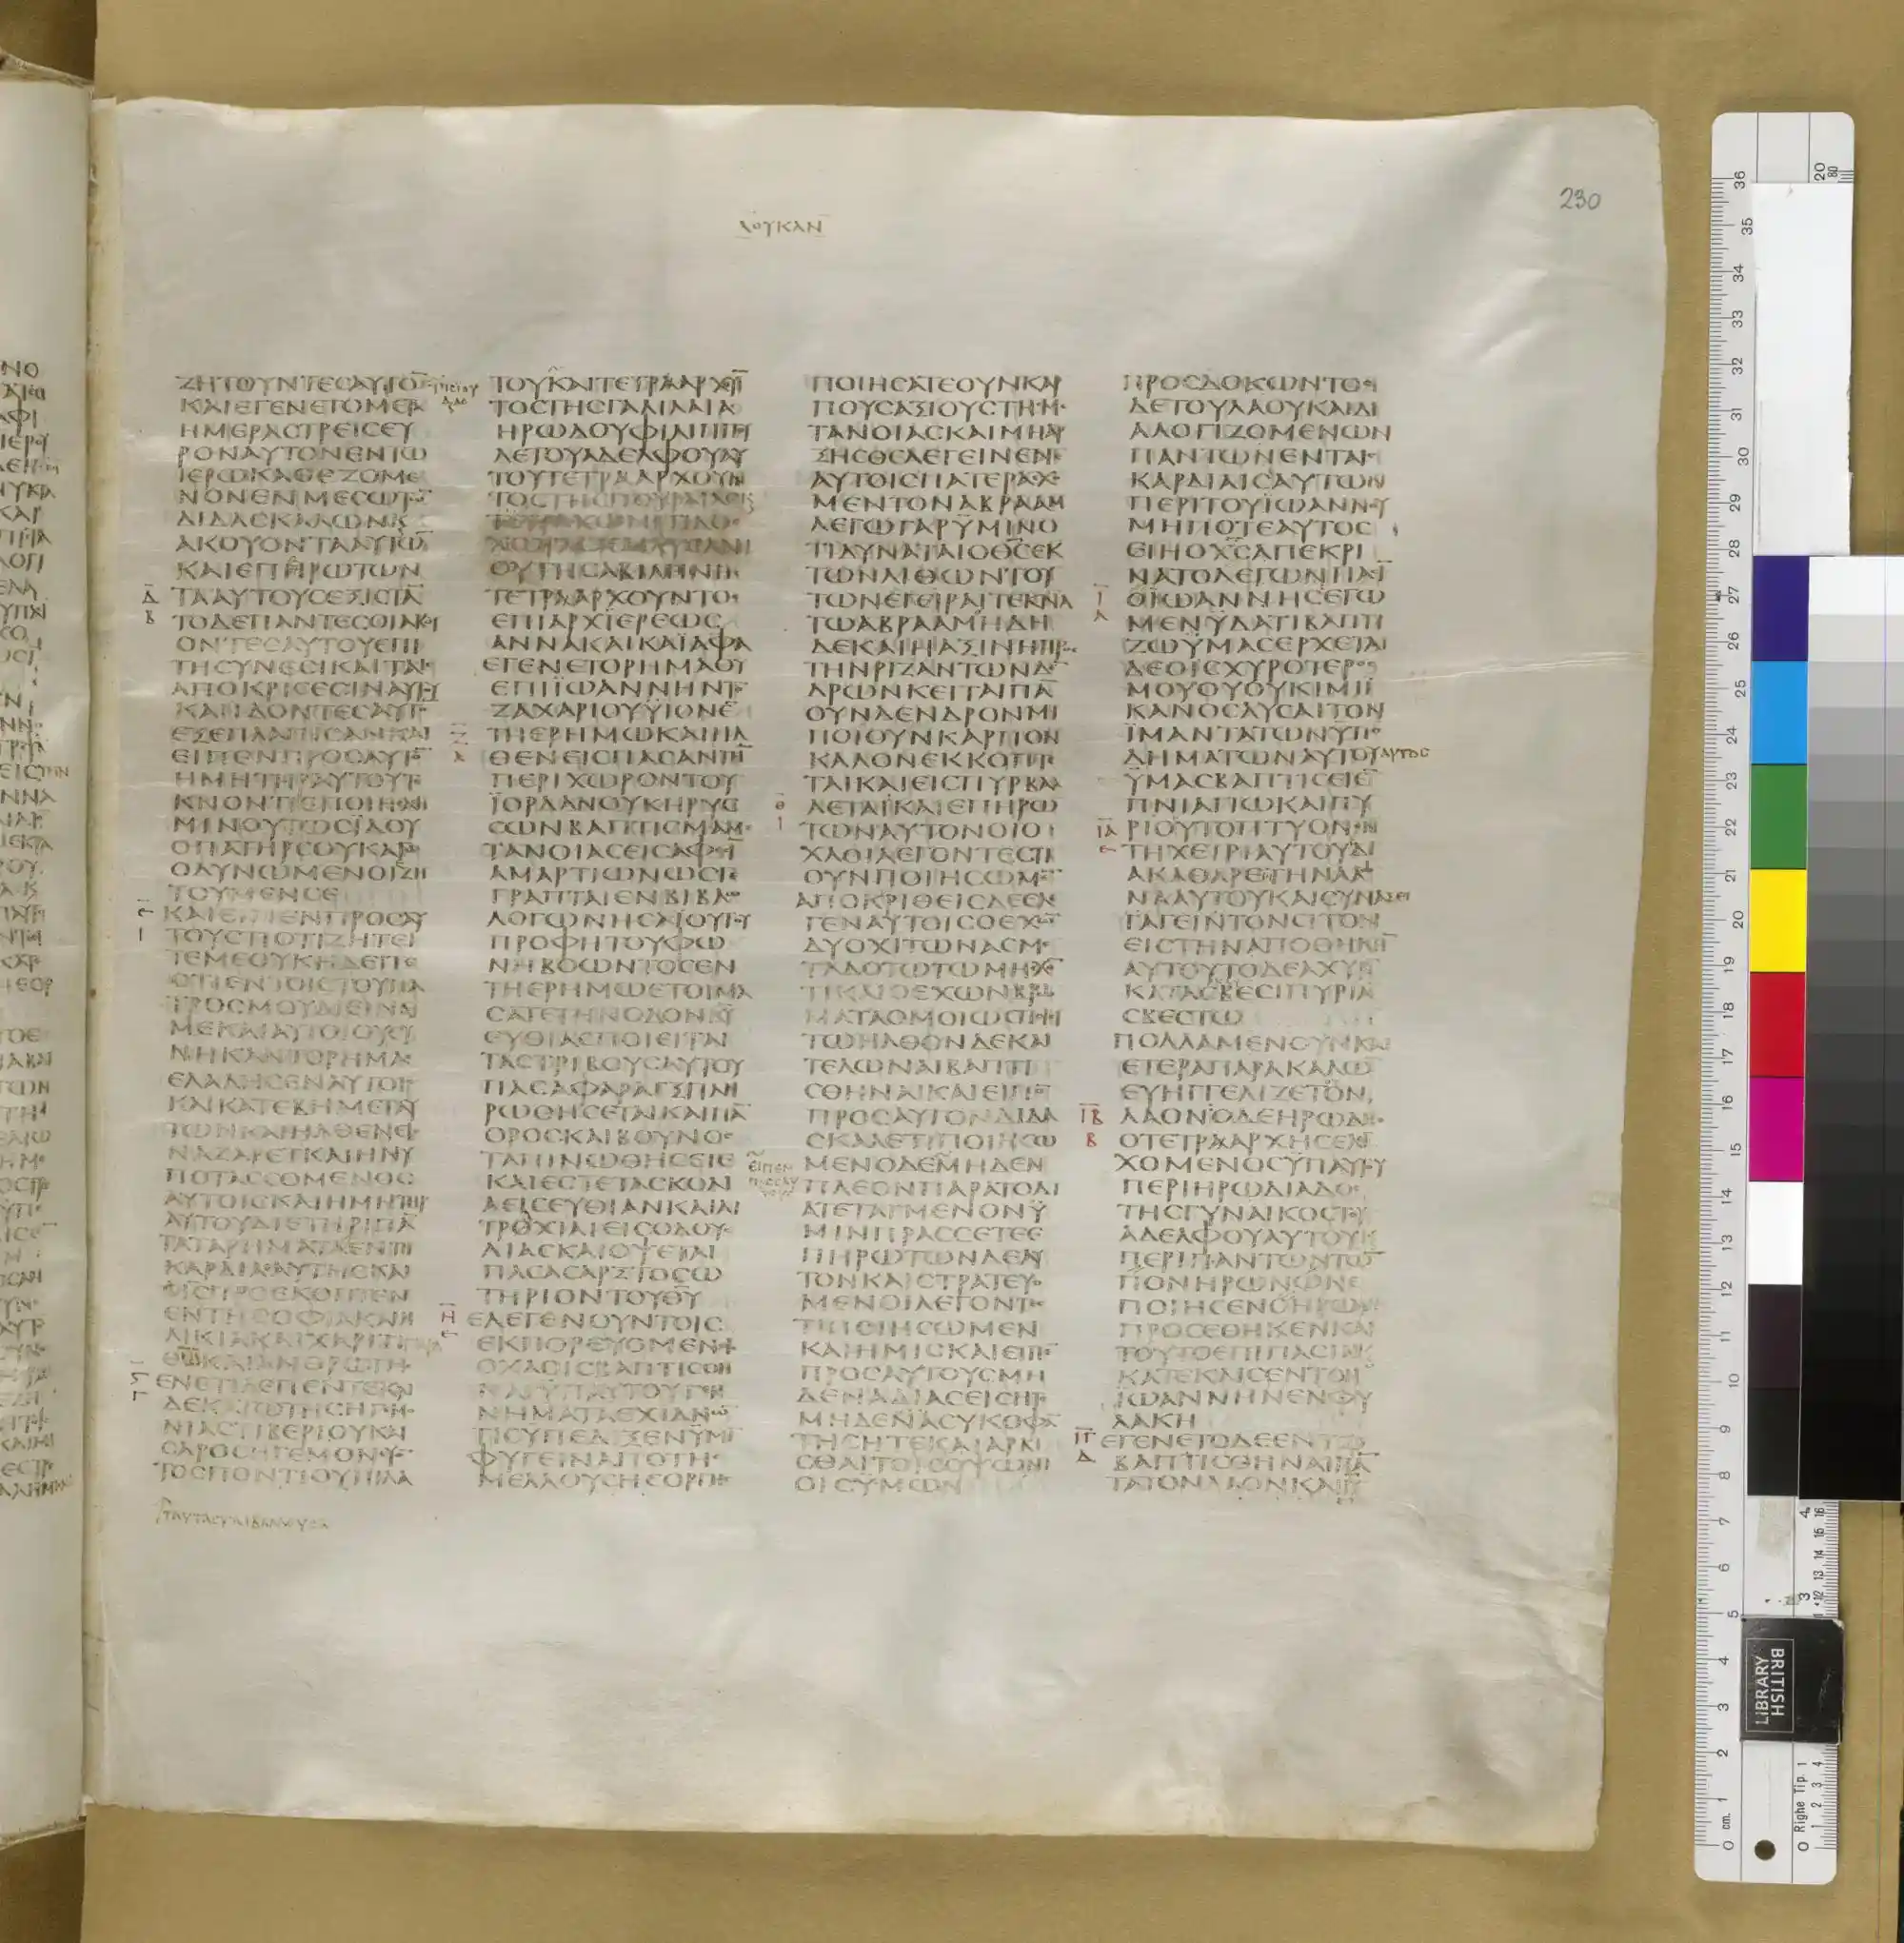 ΛΟΥΚΑΝ
230
ΖΗΤΟΥΝΤΕϹΑΥΤΟ̅
ΚΑΙΕΓΕΝΕΤΟΜΕΤΑ
ΗΜΕΡΑϹΤΡΕΙϹΕΥ
ΡΟΝΑΥΤΟΝΕΝΤΩ
ΙΕΡΩΚΑΘΕΖΟΜΕ
ΝΟΝΕΝΜΕϹΩΤΩ̅
ΔΙΔΑϹΚΑΛΩΝΚ
ΑΚΟΥΟΝΤΑΑΥΤΩ̅
ΚΑΙΕΠΗΡΩΤΩΝ
ΤΑΑΥΤΟΥϹΕΞΙϹΤΑ̅
ΤΟΔΕΠΑΝΤΕϹΟΙΑΚΟΥ
ΟΝΤΕϹΑΥΤΟΥΕΠΙ
ΤΗϹΥΝΕϹΙΚΑΙΤΑΙϹ
ΑΠΟΚΡΙϹΕϹΙΝΑΥΤΟΥ
ΚΑΙΙΔΟΝΤΕϹΑΥΤΟ̅
ΕΞΕΠΛΑΓΗϹΑΝΚΑΙ
ΕΙΠΕΝΠΡΟϹΑΥΤΟ̅
ΗΜΗΤΗΡΑΥΤΟΥΤΕ
ΚΝΟΝΤΙΕΠΟΙΗϹΑϹΗ
ΜΙΝΟΥΤΩϹΪΔΟΥ
ΟΠΑΤΗΡϹΟΥΚΑΓΩ
ΟΔΥΝΩΜΕΝΟΙΖΗ
ΤΟΥΜΕΝϹΕ
ΚΑΙΕΙΠΕΝΠΡΟϹΑΥ
ΤΟΥϹΤΙΟΤΙΖΗΤΕΙ
ΤΕΜΕΟΥΚΗΔΕΙΤΕ
ΟΤΙΕΝΤΟΙϹΤΟΥΠΑ
ΤΡΟϹΜΟΥΔΙΕΙΝΑΙ
ΜΕΚΑΙΑΥΤΟΙΟΥϹΥ
ΝΗΚΑΝΤΟΡΗΜΑΟ
ΕΛΑΛΗϹΕΝΑΥΤΟΙϹ
ΚΑΙΚΑΤΕΒΗΜΕΤΑΥ
ΤΩΝΚΑΙΗΛΘΕΝΕΙϹ
ΝΑΖΑΡΕΤΚΑΙΗΝΥ
ΠΟΤΑϹϹΟΜΕΝΟϹ
ΑΥΤΟΙϹΚΑΙΗΜΗΤΗΡ
ΑΥΤΟΥΔΙΕΤΗΡΙΠΑ̅
ΤΑΤΑΡΗΜΑΤΑΕΝΤΗ
ΚΑΡΔΙΑΑΥΤΗϹΚΑΙ
ΙϹΠΡΟΕΚΟΠΤΕΝ
ΕΝΤΗϹΟΦΙΑΚΑΙΗ
ΛΙΚΙΑΚΑΙΧΑΡΙΤΙΠΑΡΑ
ΘΩΚΑΙΑΝΘΡΩΠΟΙϹ
ΕΝΕΤΙΔΕΠΕΝΤΕΚΑΙ
ΔΕΚΑΤΩΤΗϹΗΓΕΜΟ
ΝΙΑϹΤΙΒΕΡΙΟΥΚΑΙ
ϹΑΡΟϹΗΓΕΜΟΝΕΥΟ̅
ΤΟϹΠΟΝΤΙΟΥΠΙΛΑ
ΤΟΥΚΑΙΤΕΤΡΑΑΡΧΟΥ̅
ΤΟϹΤΗϹΓΑΛΙΛΑΙΑϹ
ΗΡΩΔΟΥΦΙΛΙΠΠΟΥ
ΔΕΤΟΥΑΔΕΛΦΟΥΑΥ
ΤΟΥΤΕΤΡΑΑΡΧΟΥΝ
ΤΟϹΤΗϹΙΤΟΥΡΑΙΑϹΚΑΙ
ΤΡΑΧΩΝΙΤΙΔΟϹ
ΧΩΡΑϹΚΑΙΛΥϹΑΝΙ
ΟΥΤΗϹΑΒΙΛΗΝΗϹ
ΤΕΤΡΑΑΡΧΟΥΝΤΟϹ
ΕΠΙΑΡΧΙΕΡΕΩϹ
ΑΝΝΑΚΑΙΚΑΪΑΦΑ
ΕΓΕΝΕΤΟΡΗΜΑΘΥ
ΕΠΙΪΩΑΝΝΗΝΤΟ̅
ΖΑΧΑΡΙΟΥΫΙΟΝΕ̅
ΤΗΕΡΗΜΩΚΑΙΗΛ
ΘΕΝΕΙϹΠΑϹΑΝΤΗ̅
ΠΕΡΙΧΩΡΟΝΤΟΥ
ΪΟΡΔΑΝΟΥΚΗΡΥϹ
ϹΩΝΒΑΠΤΙϹΜΑΜΕ
ΤΑΝΟΙΑϹΕΙϹΑΦΕϹΙ̅
ΑΜΑΡΤΙΩΝΩϹΓΕ
ΓΡΑΠΤΑΙΕΝΒΙΒΛΩ
ΛΟΓΩΝΗϹΑΪΟΥΤΟΥ
ΠΡΟΦΗΤΟΥΦΩ
ΝΗΒΟΩΝΤΟϹΕΝ
ΤΗΕΡΗΜΩΕΤΟΙΜΑ
ϹΑΤΕΤΗΝΟΔΟΝΚΥ
ΕΥΘΙΑϹΠΟΙΕΙΤΑΙ
ΤΑϹΤΡΙΒΟΥϹΑΥΤΟΥ
ΠΑϹΑΦΑΡΑΓΞΠΛΗ
ΡΩΘΗϹΕΤΑΙΚΑΙΠΑ̅
ΟΡΟϹΚΑΙΒΟΥΝΟϹ
ΤΑΠΙΝΩΘΗϹΕΙΕ
ΚΑΙΕϹΤΕΤΑϹΚΟΛΙ
ΑΕΙϹΕΥΘΙΑΝΚΑΙΑΙ
ΤΡΟΧΙΑΙΕΙϹΟΔΟΥϹ
ΛΙΑϹΚΑΙΟΨΕΤΑΙ
ΠΑϹΑϹΑΡΞΤΟϹΩ
ΤΗΡΙΟΝΤΟΥΘΥ
ΕΛΕΓΕΝΟΥΝΤΟΙϹ
ΕΚΠΟΡΕΥΟΜΕΝΟΙϹ
ΟΧΛΟΙϹΒΑΠΤΙϹΘΗ
ΝΑΙΫΠΑΥΤΟΥΓΕΝ
ΝΗΜΑΤΑΕΧΙΔΝΩ̅
ΤΙϹΫΠΕΔΙΞΕΝΫΜΙ̅
ΦΥΓΕΙΝΑΠΟΤΗϹ
ΜΕΛΛΟΥϹΗϹΟΡΓΗϹ
ΠΟΙΗϹΑΤΕΟΥΝΚΑΡ
ΠΟΥϹΑΞΙΟΥϹΤΗϹΜΕ
ΤΑΝΟΙΑϹΚΑΙΜΗΑΡ
ΞΗϹΘΕΛΕΓΕΙΝΕΝΕ
ΑΥΤΟΙϹΠΑΤΕΡΑΕΧΟ
ΜΕΝΤΟΝΑΒΡΑΑΜ
ΛΕΓΩΓΑΡΫΜΙΝΟ
ΤΙΔΥΝΑΤΑΙΟΘϹΕΚ
ΤΩΝΛΙΘΩΝΤΟΥ
ΤΩΝΕΓΕΙΡΑΙΤΕΚΝΑ
ΤΩΑΒΡΑΑΜΗΔΗ
ΔΕΚΑΙΗΑΞΙΝΗΠΡΟϹ
ΤΗΝΡΙΖΑΝΤΩΝΔΕ̅
ΔΡΩΝΚΕΙΤΑΙΠΑ̅
ΟΥΝΔΕΝΔΡΟΝΜΗ
ΠΟΙΟΥΝΚΑΡΠΟΝ
ΚΑΛΟΝΕΚΚΟΠΤΕ
ΤΑΙΚΑΙΕΙϹΠΥΡΒΑΛ
ΛΕΤΑΙΚΑΙΕΠΗΡΩ
ΤΩΝΑΥΤΟΝΟΙΟ
ΧΛΟΙΛΕΓΟΝΤΕϹΤΙ
ΟΥΝΠΟΙΗϹΩΜΕ̅
ΑΠΟΚΡΙΘΕΙϹΔΕΕΛΕ
ΓΕΝΑΥΤΟΙϹΟΕΧΩ̅
ΔΥΟΧΙΤΩΝΑϹΜΕ
ΤΑΔΟΤΩΤΩΜΗΕΧΟ̅
ΤΙΚΑΙΟΕΧΩΝΒΡΩ
ΜΑΤΑΟΜΟΙΩϹΠΟΙΙ
ΤΩΗΛΘΟΝΔΕΚΑΙ
ΤΕΛΩΝΑΙΒΑΠΤΙ
ϹΘΗΝΑΙΚΑΙΕΙΠΟ̅
ΠΡΟϹΑΥΤΟΝΔΙΔΑ
ϹΚΑΛΕΤΙΠΟΙΗϹΩ
ΜΕΝΟΔΕΜΗΔΕΝ
ΠΛΕΟΝΠΑΡΑΤΟΔΙ
ΑΤΕΤΑΓΜΕΝΟΝΫ
ΜΙΝΠΡΑϹϹΕΤΕΕ
ΠΗΡΩΤΩΝΔΕΑΥ
ΤΟΝΚΑΙϹΤΡΑΤΕΥΟ
ΜΕΝΟΙΛΕΓΟΝΤΕϹ
ΤΙΠΟΙΗϹΩΜΕΝ
ΚΑΙΗΜΙϹΚΑΙΕΙΠΕ̅
ΠΡΟϹΑΥΤΟΥϹΜΗ
ΔΕΝΑΔΙΑϹΕΙϹΗΤΕ
ΜΗΔΕΝΑϹΥΚΟΦΑ̅
ΤΗϹΗΤΕΚΑΙΑΡΚΙ
ϹΘΑΙΤΟΙϹΟΨΩΝΙ
ΟΙϹΫΜΩΝ
ΠΡΟϹΔΟΚΩΝΤΟϹ
ΔΕΤΟΥΛΑΟΥΚΑΙΔΙ
ΑΛΟΓΙΖΟΜΕΝΩΝ
ΠΑΝΤΩΝΕΝΤΑΙϹ
ΚΑΡΔΙΑΙϹΑΥΤΩΝ
ΠΕΡΙΤΟΥΪΩΑΝΝΟΥ
ΜΗΠΟΤΕΑΥΤΟϹ
ΕΙΗΟΧϹΑΠΕΚΡΙ
ΝΑΤΟΛΕΓΩΝΠΑϹΙ̅
ΟΪΩΑΝΝΗϹΕΓΩ
ΜΕΝΫΔΑΤΙΒΑΠΤΙ
ΖΩΫΜΑϹΕΡΧΕΤΑΙ
ΔΕΟΙϹΧΥΡΟΤΕΡΟϹ
ΜΟΥΟΥΟΥΚΙΜΙΪ
ΚΑΝΟϹΛΥϹΑΙΤΟΝ
ΪΜΑΝΤΑΤΩΝΫΠΟ
ΔΗΜΑΤΩΝΑΥΤΟΥΑΥΤΟϹ
ΫΜΑϹΒΑΠΤΙϹΕΙΕ̅
ΠΝΙΑΓΙΩΚΑΙΠΥ
ΡΙΟΥΤΟΠΤΥΟΝΕΝ
ΤΗΧΕΙΡΙΑΥΤΟΥΔΙ
ΑΚΑΘΑΡΕΤΗΝΑΛΩ
ΝΑΑΥΤΟΥΚΑΙϹΥΝΑΞΕΙ
ΓΑΓΕΙΝΤΟΝϹΙΤΟΝ
ΕΙϹΤΗΝΑΠΟΘΗΚΗ̅
ΑΥΤΟΥΤΟΔΕΑΧΥΡΟ̅
ΚΑΤΑϹΒΕϹΙΠΥΡΙΑ
ϹΒΕϹΤΩ
ΠΟΛΛΑΜΕΝΟΥΝΚΑΙ
ΕΤΕΡΑΠΑΡΑΚΑΛΩ̅
ΕΥΗΓΓΕΛΙΖΕΤΟΝ
ΛΑΟΝΟΔΕΗΡΩΔΗϹ
ΟΤΕΤΡΑΑΡΧΗϹΕΛΕΓ
ΧΟΜΕΝΟϹΫΠΑΥΤΟΥ
ΠΕΡΙΗΡΩΔΙΑΔΟϹ
ΤΗϹΓΥΝΑΙΚΟϹΤΟΥ
ΑΔΕΛΦΟΥΑΥΤΟΥΚ
ΠΕΡΙΠΑΝΤΩΝΤΩ̅
ΠΟΝΗΡΩΝΩΝΕ
ΠΟΙΗϹΕΝΟΗΡΩΔΗϹ
ΠΡΟϹΕΘΗΚΕΝΚΑΙ
ΤΟΥΤΟΕΠΙΠΑϹΙΝΚ
ΚΑΤΕΚΛΙϹΕΝΤΟΝ
ΪΩΑΝΝΗΝΕΝΦΥ
ΛΑΚΗ
ΕΓΕΝΕΤΟΔΕΕΝΤΩ
ΒΑΠΤΙϹΘΗΝΑΙΠΑ̅
ΤΑΤΟΝΛΑΟΝΚΑΙΙΥ